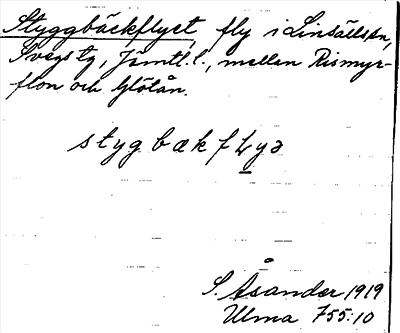 Styggbäckflyet, fly i Linsälls sn,
Svegs tg, Jämtl. l., mellan Rismyr-
flon och Glölån.
stygbækflyə
S. Åsander 1919
Ulma 755:10